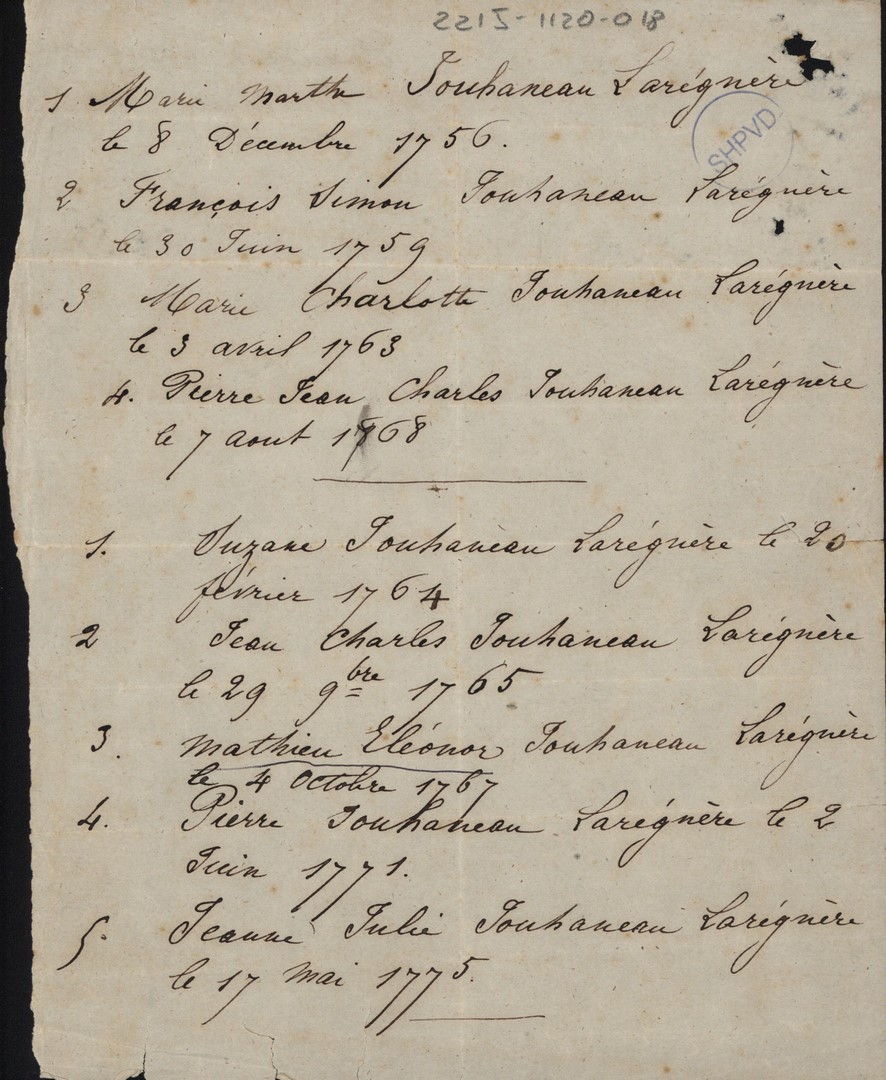 2215-1120-018
1 Marie Marthe Jouhaneau Larégnère
SHPVD
le 8 Décembre 1756.
2 François Simon Jouhaneau Larégnère
le 30 Juin 1759
3 Marie Charlotte Jouhaneau Larégnère
le 3 avril 1763
4. Pierre Jean Charles Jouhaneau Larégnère
le 7 aout 1768
1. Suzane Jouhaneau Larégnère le 20
février 1764
2 Jean Charles Jouhaneau Larégnère
le 29 9bre 1765
3. Mathieu Eléonor Jouhaneau Larégnère
le 4 Octobre 1767
4. Pierre Jouhaneau Larégnère le 2
Juin 1771.
5. Jeanne Julie Jouhaneau Larégnère
le 17 Mai 1775.